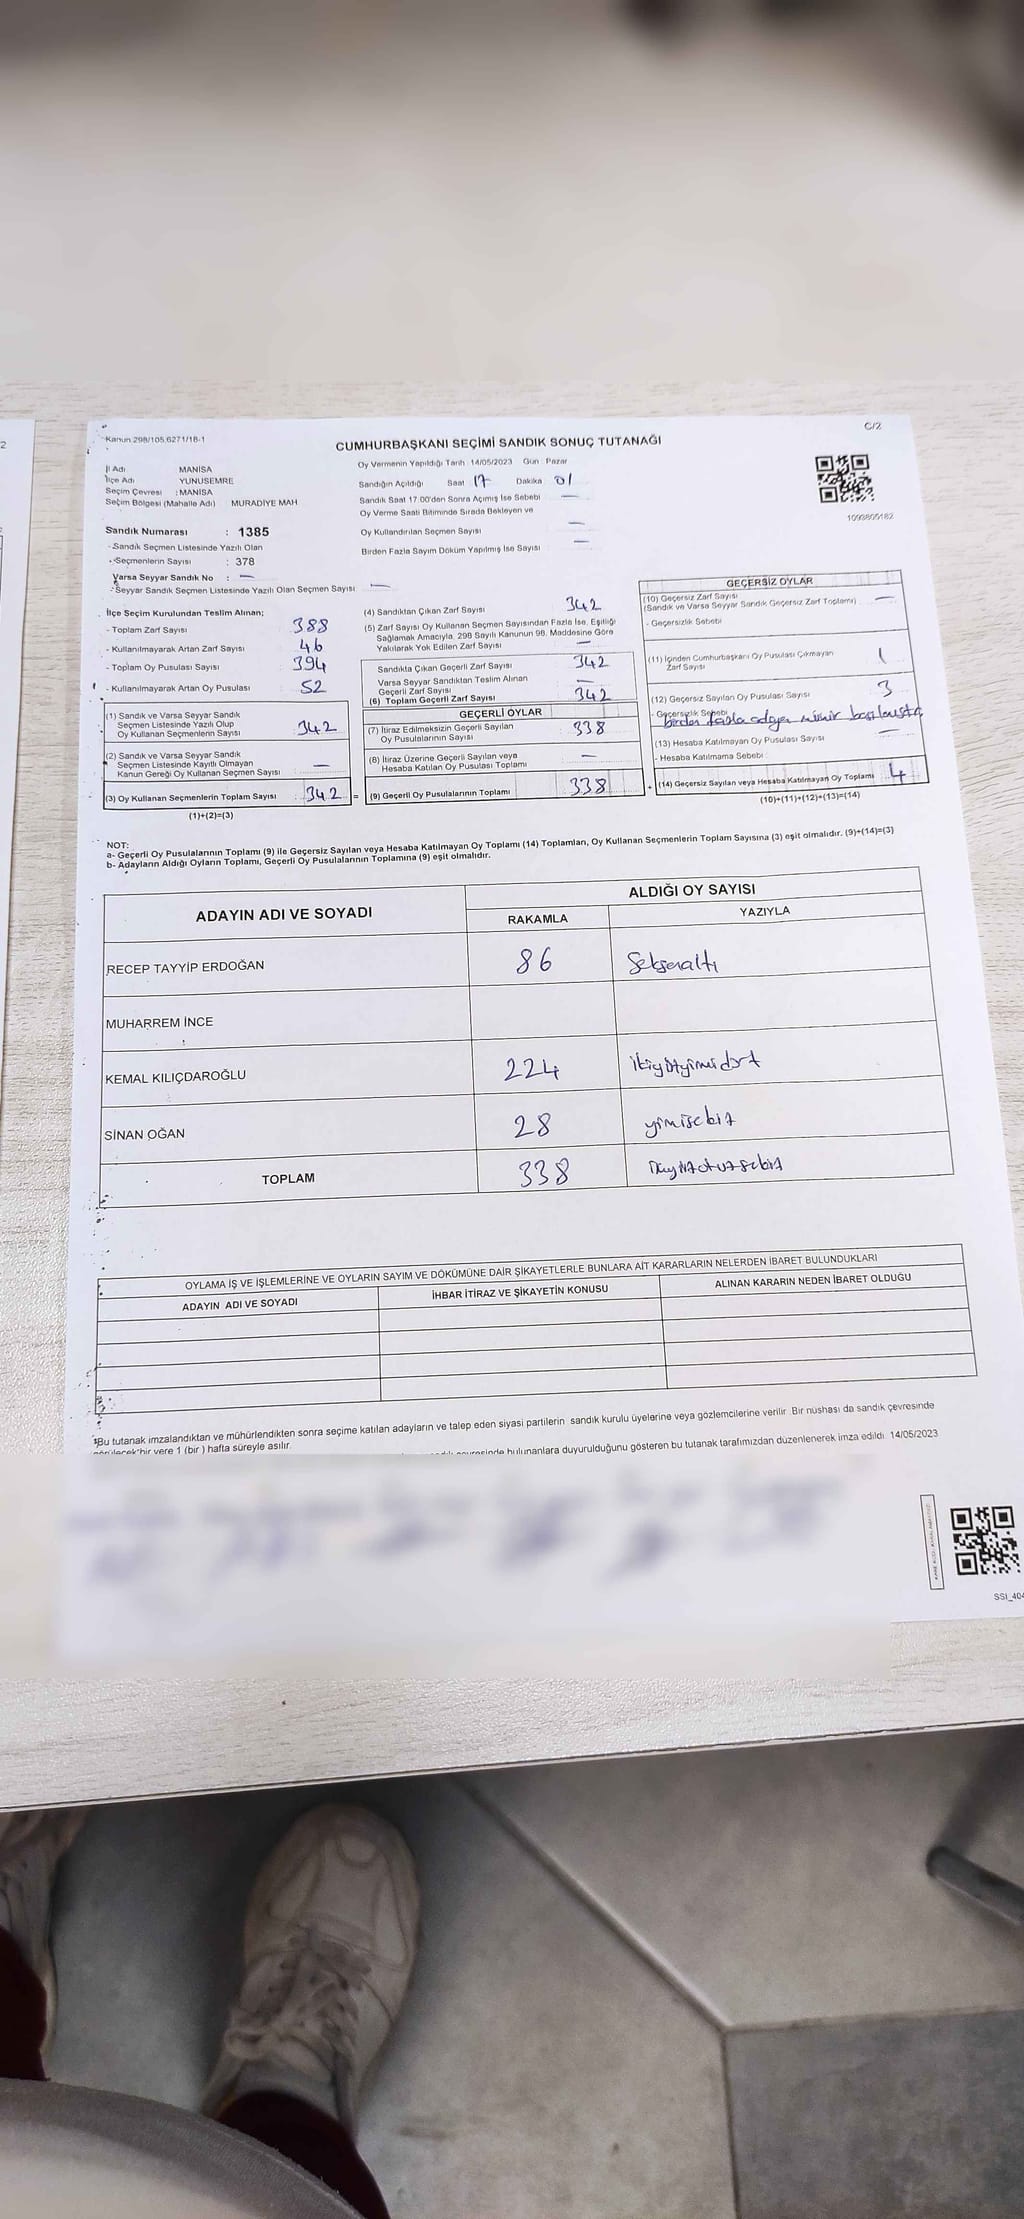 Kanun 298/105,6271/18-1
C/2
CUMHURBAŞKANI SEÇİMİ SANDIK SONUÇ TUTANAĞI
İl Adı MANİSA
İlçe Adı YUNUSEMRE
Seçim Çevresi : MANİSA
Seçim Bölgesi (Mahalle Adı) MURADİYE MAH
Sandık Numarası : 1385
- Sandık Seçmen Listesinde Yazılı Olan
- Seçmenlerin Sayısı : 378
Varsa Seyyar Sandık No : —
- Seyyar Sandık Seçmen Listesinde Yazılı Olan Seçmen Sayısı —
Oy Vermenin Yapıldığı Tarih 14/05/2023 Gün Pazar
Sandığın Açıldığı Saat 17 Dakika 01
Sandık Saat 17.00'den Sonra Açımış İse Sebebi —
Oy Verme Saati Bitiminde Sırada Bekleyen ve
Oy Kullandırılan Seçmen Sayısı —
Birden Fazla Sayım Döküm Yapılmış İse Sayısı —
1093805182
İlçe Seçim Kurulundan Teslim Alınan;
- Toplam Zarf Sayısı 388
- Kullanılmayarak Artan Zarf Sayısı 46
- Toplam Oy Pusulası Sayısı 394
- Kullanılmayarak Artan Oy Pusulası 52
(1) Sandık ve Varsa Seyyar Sandık
Seçmen Listesinde Yazılı Olup
Oy Kullanan Seçmenlerin Sayısı 342
(2) Sandık ve Varsa Seyyar Sandık
Seçmen Listesinde Kayıtlı Olmayan
Kanun Gereği Oy Kullanan Seçmen Sayısı —
(3) Oy Kullanan Seçmenlerin Toplam Sayısı 342 =
(1)+(2)=(3)
(4) Sandıktan Çıkan Zarf Sayısı 342
(5) Zarf Sayısı Oy Kullanan Seçmen Sayısından Fazla İse, Eşitliği
Sağlamak Amacıyla, 298 Sayılı Kanunun 98. Maddesine Göre
Yakılarak Yok Edilen Zarf Sayısı —
Sandıkta Çıkan Geçerli Zarf Sayısı 342
Varsa Seyyar Sandıktan Teslim Alınan
Geçerli Zarf Sayısı —
(6) Toplam Geçerli Zarf Sayısı 342
GEÇERLİ OYLAR
(7) İtiraz Edilmeksizin Geçerli Sayılan
Oy Pusulalarının Sayısı 338
(8) İtiraz Üzerine Geçerli Sayılan veya
Hesaba Katılan Oy Pusulası Toplamı —
(9) Geçerli Oy Pusulalarının Toplamı 338 +
GEÇERSİZ OYLAR
(10) Geçersiz Zarf Sayısı
(Sandık ve Varsa Seyyar Sandık Geçersiz Zarf Toplamı) —
- Geçersizlik Sebebi
(11) İçinden Cumhurbaşkanı Oy Pusulası Çıkmayan
Zarf Sayısı 1
(12) Geçersiz Sayılan Oy Pusulası Sayısı 3
- Geçersizlik Sebebi
birden fazla adaya mühür basılmıştır
(13) Hesaba Katılmayan Oy Pusulası Sayısı —
- Hesaba Katılmama Sebebi
(14) Geçersiz Sayılan veya Hesaba Katılmayan Oy Toplamı 4
(10)+(11)+(12)+(13)=(14)
NOT:
a- Geçerli Oy Pusulalarının Toplamı (9) ile Geçersiz Sayılan veya Hesaba Katılmayan Oy Toplamı (14) Toplamları, Oy Kullanan Seçmenlerin Toplam Sayısına (3) eşit olmalıdır. (9)+(14)=(3)
b- Adayların Aldığı Oyların Toplamı, Geçerli Oy Pusulalarının Toplamına (9) eşit olmalıdır.
ADAYIN ADI VE SOYADI
ALDIĞI OY SAYISI
RAKAMLA YAZIYLA
RECEP TAYYİP ERDOĞAN 86 Seksenaltı
MUHARREM İNCE
KEMAL KILIÇDAROĞLU 224 ikiyüzyirmidört
SİNAN OĞAN 28 yirmisekiz
TOPLAM 338 üçyüzotuzsekiz
OYLAMA İŞ VE İŞLEMLERİNE VE OYLARIN SAYIM VE DÖKÜMÜNE DAİR ŞİKAYETLERLE BUNLARA AİT KARARLARIN NELERDEN İBARET BULUNDUKLARI
ADAYIN ADI VE SOYADI İHBAR İTİRAZ VE ŞİKAYETİN KONUSU ALINAN KARARIN NEDEN İBARET OLDUĞU
Bu tutanak imzalandıktan ve mühürlendikten sonra seçime katılan adayların ve talep eden siyasi partilerin sandık kurulu üyelerine veya gözlemcilerine verilir. Bir nüshası da sandık çevresinde
bir yere 1 (bir) hafta süreyle asılır.
bulunanlara duyurulduğunu gösteren bu tutanak tarafımızdan düzenlenerek imza edildi 14/05/2023